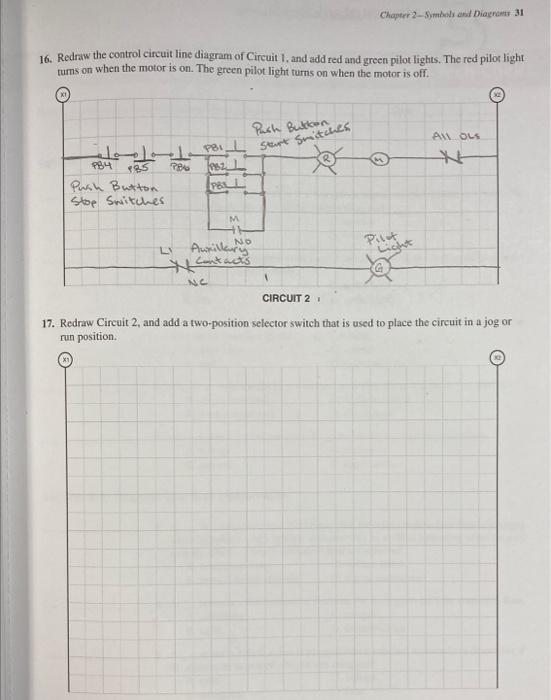 Chapter 2—Symbols and Diagrams 31
16. Redraw the control circuit line diagram of Circuit 1, and add red and green pilot lights. The red pilot light
turns on when the motor is on. The green pilot light turns on when the motor is off.
X1
X2
Push Button
Start Switches
All OLs
PB1
PB4
PB5
PB6
PB2
R
M
Push Button
Stop Switches
PB3
M
NO
Pilot
Light
L1
Auxillary
Contacts
G
NC
CIRCUIT 2
17. Redraw Circuit 2, and add a two-position selector switch that is used to place the circuit in a jog or
run position.
X1
X2